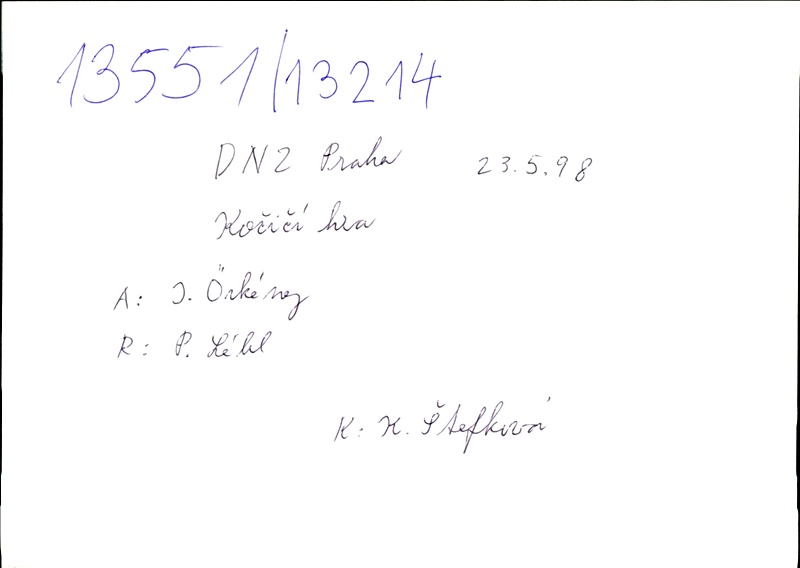 13551/13214
DNZ Praha 23.5.98
Kočičí hra
A: I. Örkény
R: P. Lébl
K: K. Štefková